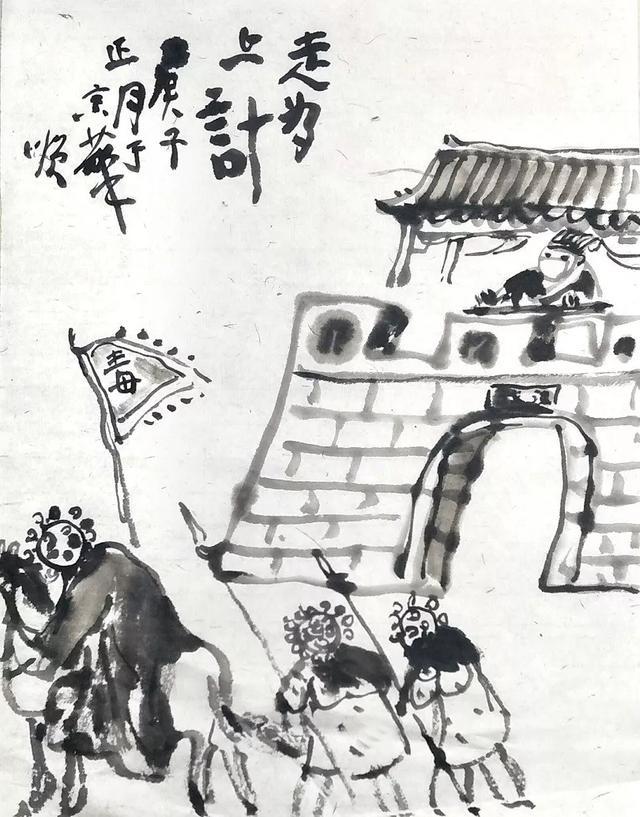 走为
上计
庚子
正月于
京華
毒